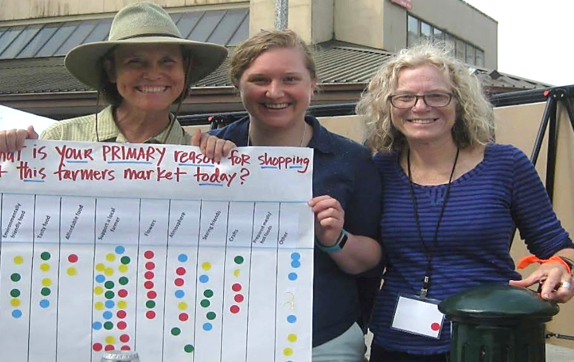 What is YOUR PRIMARY reason for shopping
at this farmers market today?
Environmentally
friendly food
Tasty food
Affordable food
Support a local
farmer
Flowers
Atmosphere
Seeing friends
Crafts
Prepared meals/
hot foods
Other